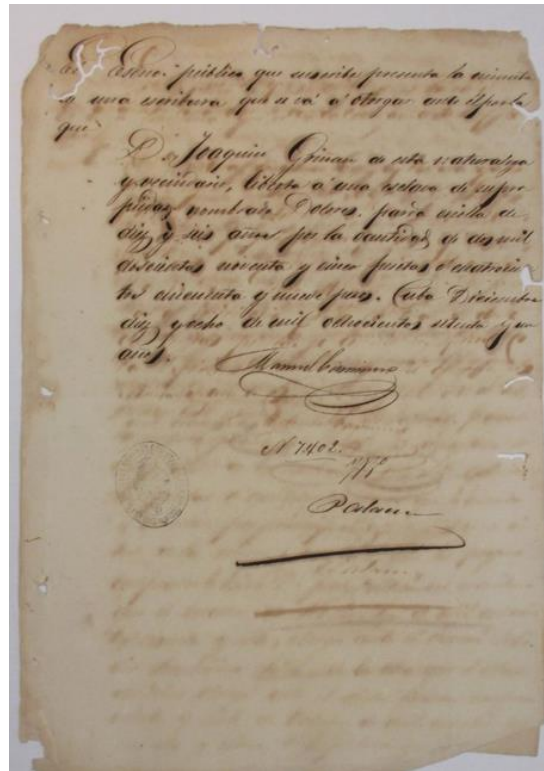 El Escno. público que suscribe presenta la minuta
de una escritura que se vá á otorgar ante él por la
que
Dn. Joaquin Griñan de esta naturaleza
y vecindario, liberta á una esclava de su pro-
piedad nombrada Dolores, parda criolla de
diez y seis años por la cantidad de dos mil
doscientos noventa y cinco pesetas ó cuatrocien-
tos cincuenta y nueve pesos. Cuba Diciembre
diez y ocho de mil ochocientos setenta y un
años.
Manuel
N 7402.